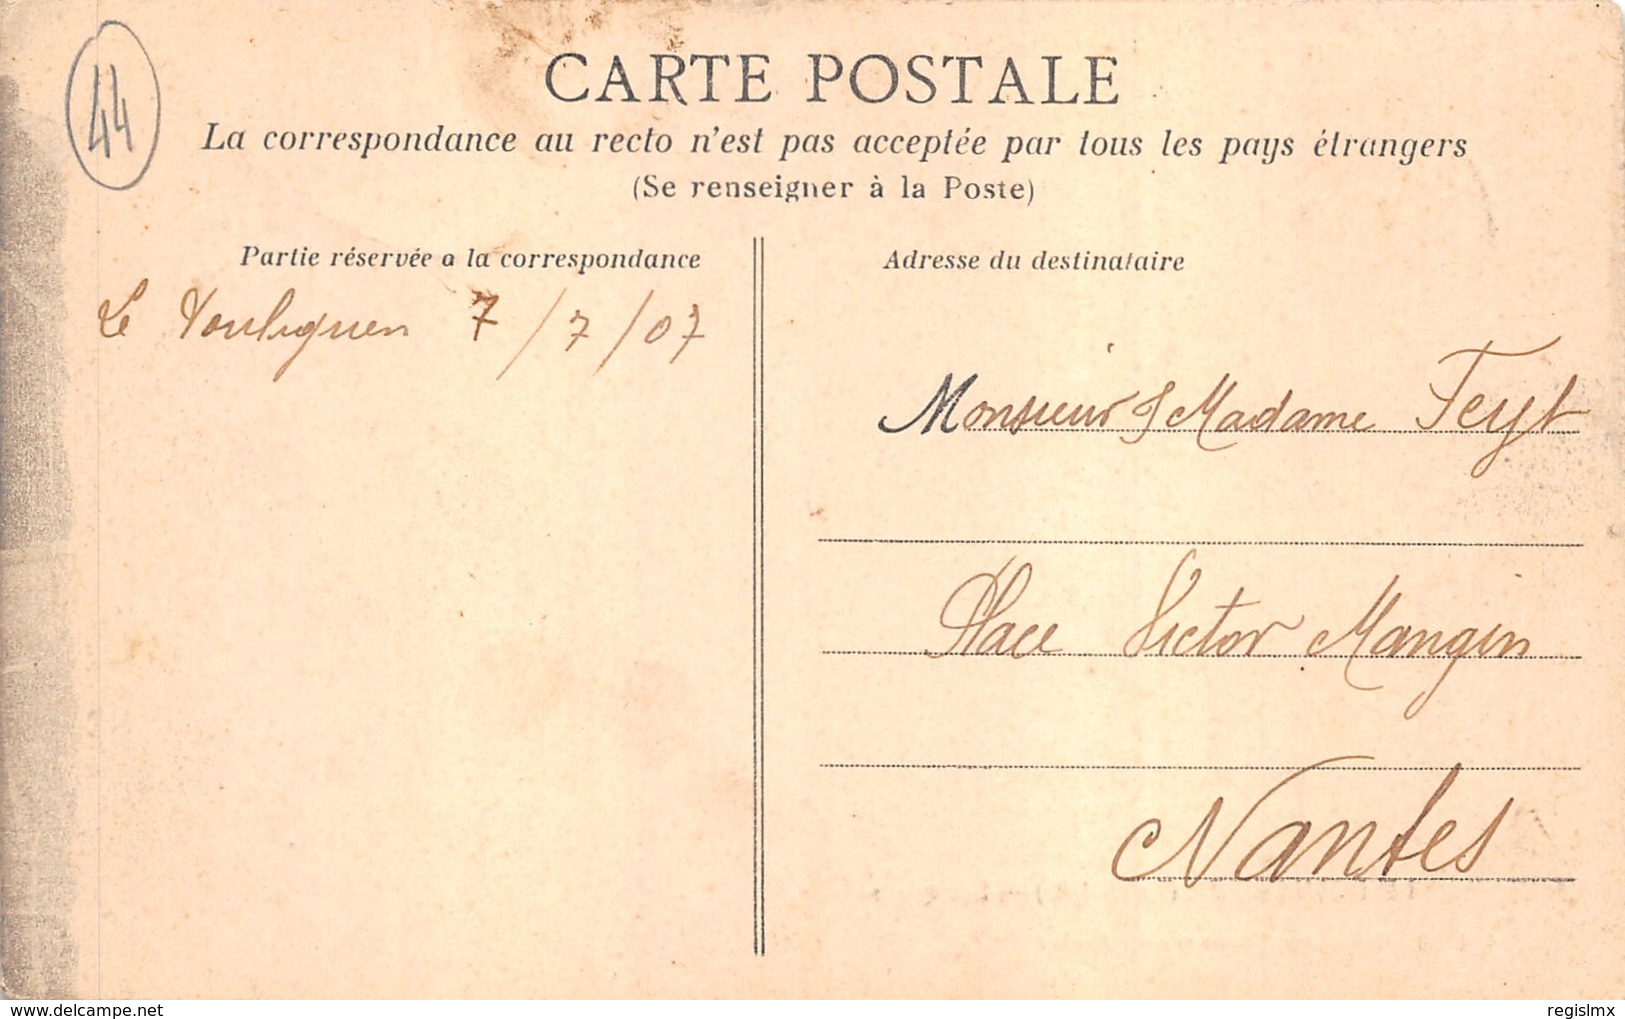 44
CARTE POSTALE
La correspondance au recto n'est pas acceptée par tous les pays étrangers
(Se renseigner à la Poste)
Partie réservée a la correspondance
Le Pouliguen 7/7/07
Adresse du destinataire
Monsieur & Madame Feyt
Place Victor Mangin
Nantes
www.delcampe.net
regislmx